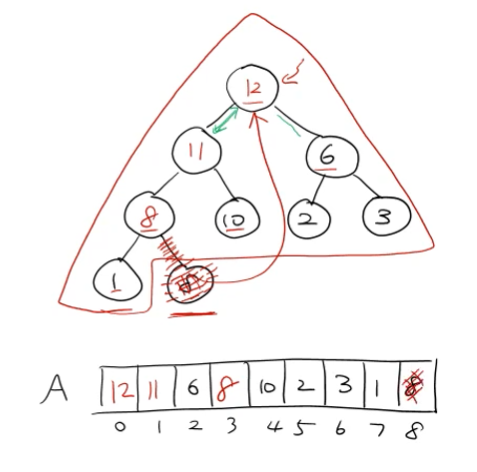 12
11 6
8 10 2 3
1
A 12 11 6 8 10 2 3 1
0 1 2 3 4 5 6 7 8